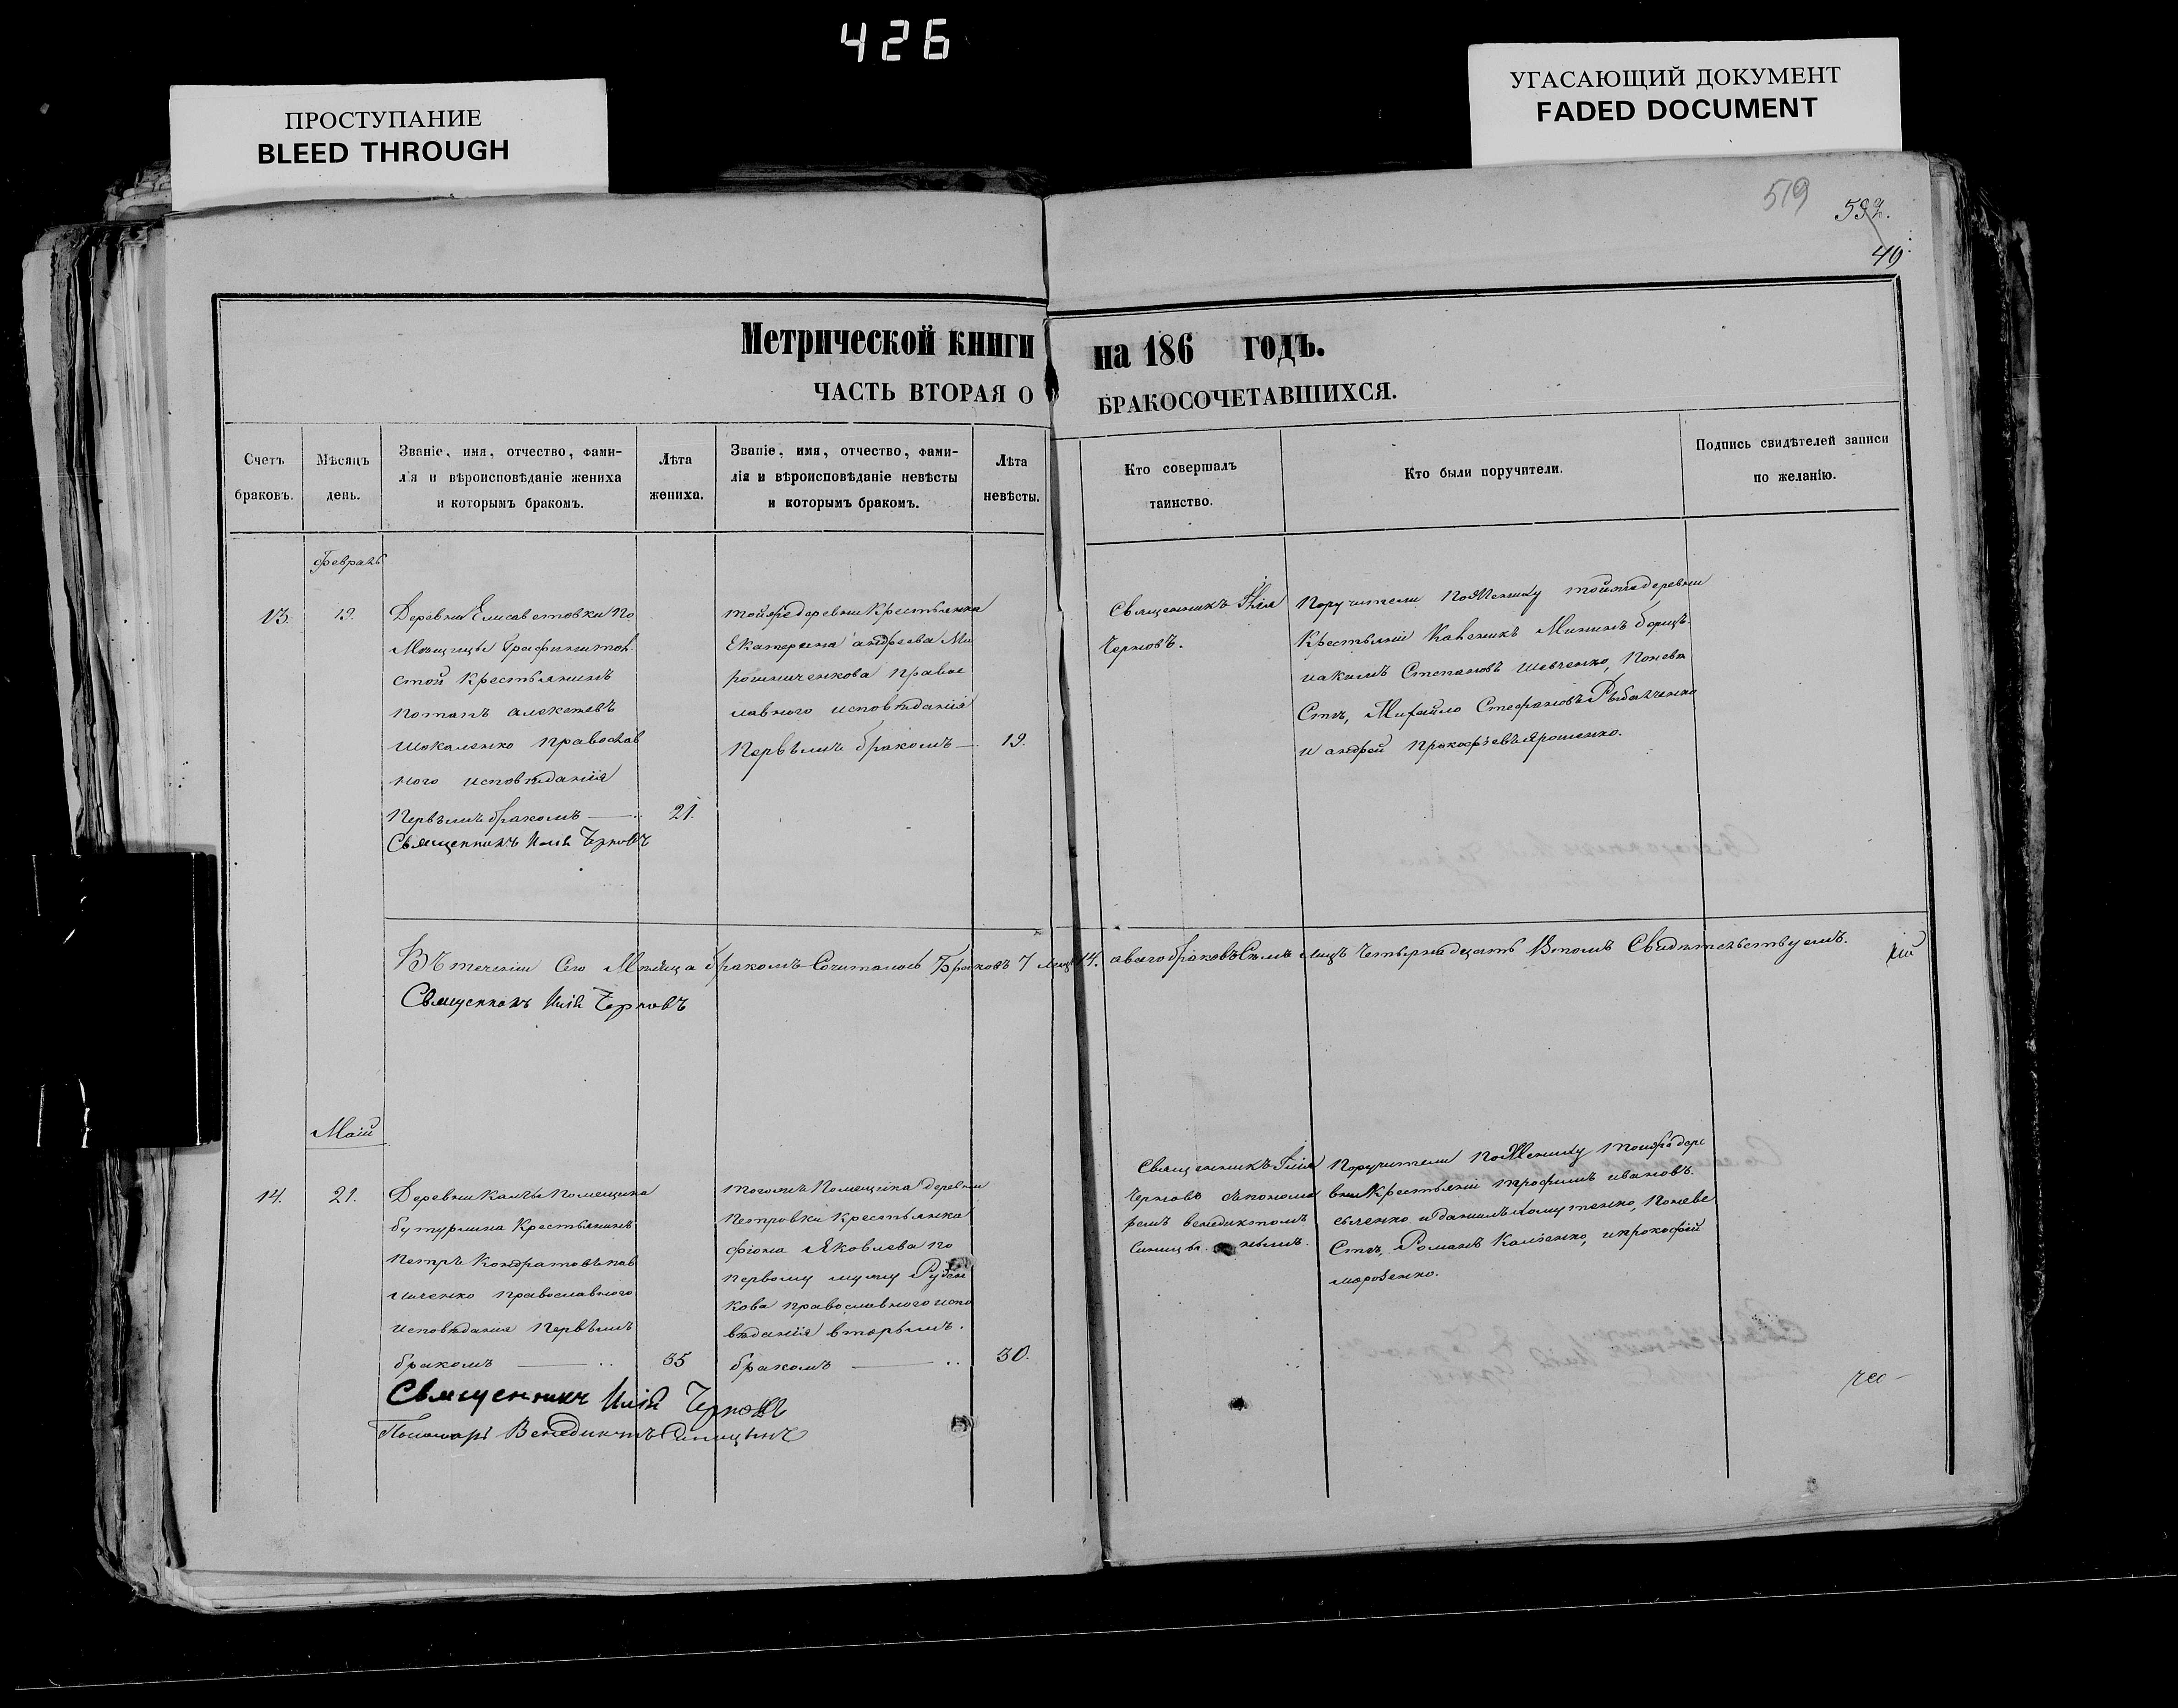 426
ПРОСТУПАНИЕ
BLEED THROUGH
УГАСАЮЩИЙ ДОКУМЕНТ
FADED DOCUMENT
519
532.
49
Метрической книги на 186 годъ.
ЧАСТЬ ВТОРАЯ О БРАКОСОЧЕТАВШИХСЯ.
Счетъ
браковъ.
Мѣсяцъ
день.
Званіе, имя, отчество, фами-
лія и вѣроисповѣданіе жениха
и которымъ бракомъ.
Лѣта
жениха.
Званіе, имя, отчество, фами-
лія и вѣроисповѣданіе невѣсты
и которымъ бракомъ.
Лѣта
невѣсты.
Кто совершалъ
таинство.
Кто были поручители.
Подпись свидѣтелей записи
по желанію.
Февраль
13.
19.
Деревни Елисаветовки По
Мѣщицы Графини тол
стой Крестьянинъ
Потапъ
Шокаленко Православ
ного исповѣданія
Первымъ бракомъ
21.
Священникъ Илія Черновъ
тойже деревни Крестьянка
Екатерина андреева Ми
рошниченкова Правос
лавного исповѣданія
Первымъ бракомъ
19.
Священникъ Илія
Черновъ.
Поручители По Жениху тойже деревни
Крестьяніи
иакимъ Степановъ Шевченко, Поневѣ
Стѣ, Михайло Стефановъ Рыбалченко
и андрей Прокофьевъ Ярошенко.
Въ теченіи Сего Мѣсяца бракомъ Сочиталось Браковъ 7 лицъ 14. а всего браковъ Семь лицъ Четырнадцать Втомъ Свидѣтельствуемъ.
Священникъ Илія Черновъ
Маій
14.
21.
Деревни Помещика
бутурлина Крестьянинъ
Петръ Кондратовъ пав
личенко православного
исповѣданія Первымъ
бракомъ
35
Священникъ Илія Черновъ
Пономарь Венедиктъ Синицынъ
тогожъ Помещика деревни
Петровки Крестьянка
фіона Яковлева По
Первому мужу Руден
кова Православного испо
вѣданія вторымъ.
бракомъ
30.
Священникъ Илія
Черновъ спонома
ремъ венедиктомъ
Синицы. нымъ.
Поручители По Жениху тойже дере
вни Крестьяніи трофимъ ивановъ.
Поневе
Стѣ, Романъ Калченко, ипрокофій
морозенко.